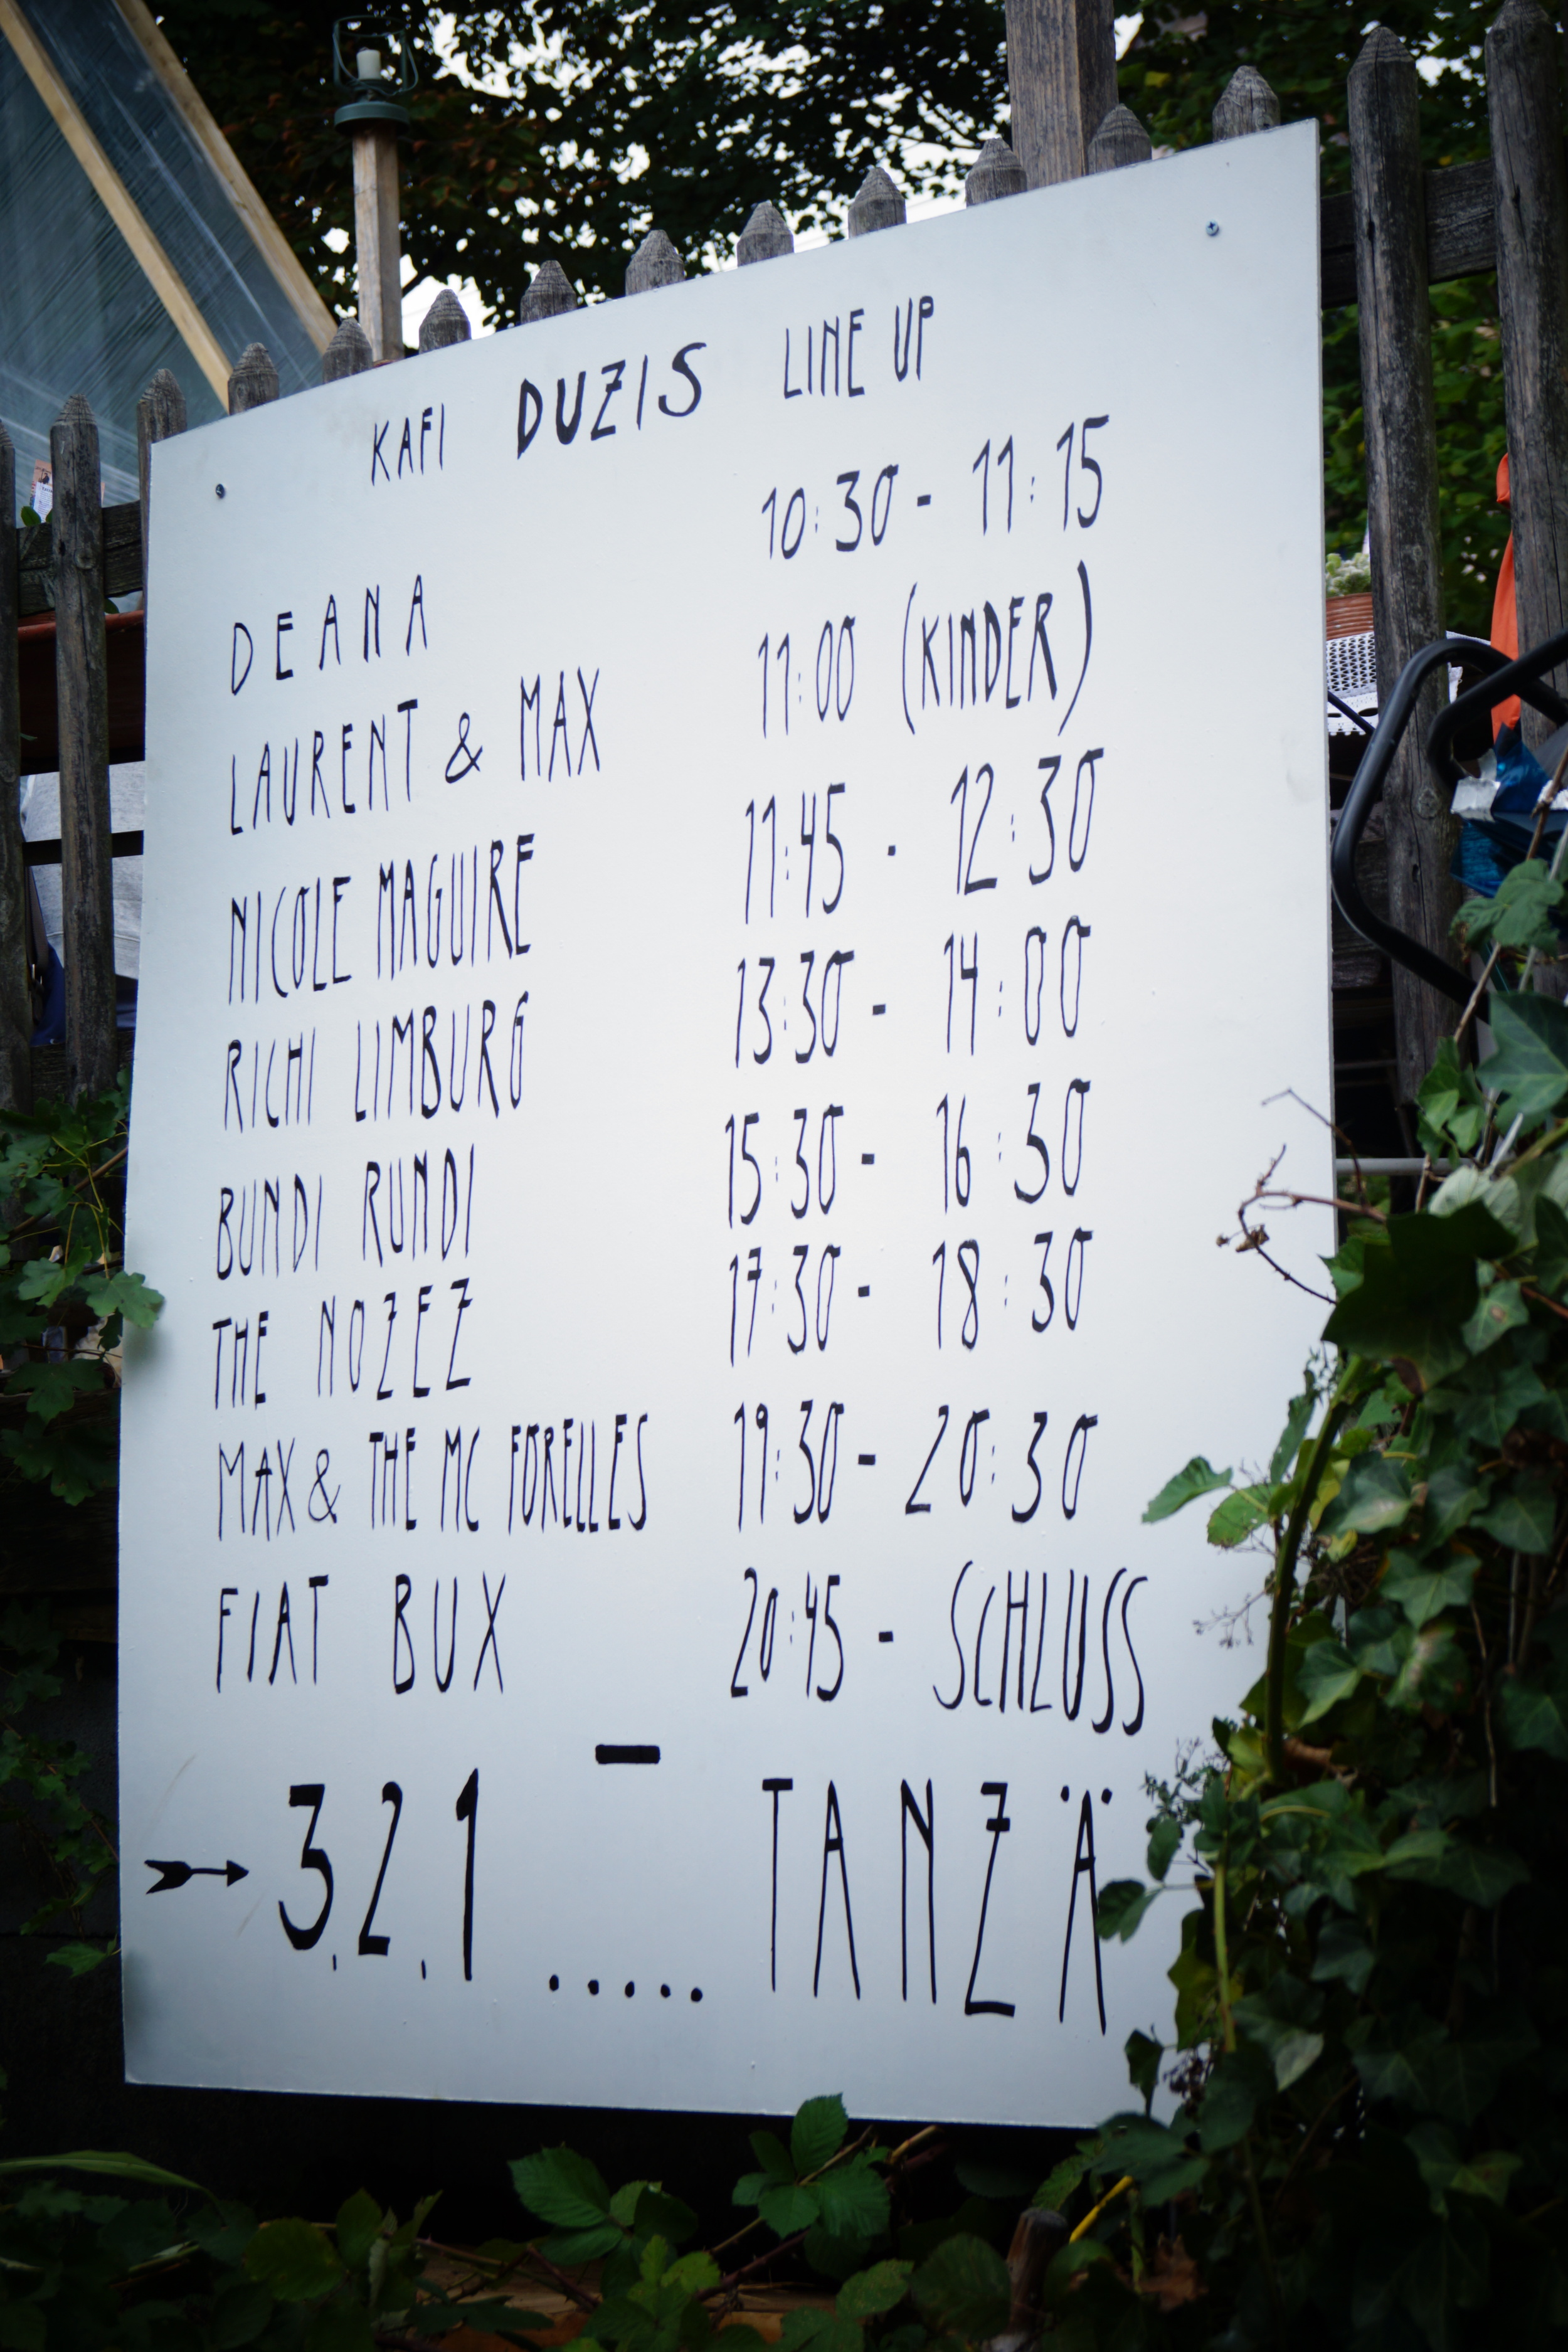 KAFI DUZIS LINE UP
DEANA 10:30 - 11:15
LAURENT & MAX 11:00 (KINDER)
NICOLE MAGUIRE 11:45 - 12:30
RICHI LIMBURG 13:30 - 14:00
BUNDI RUNDI 15:30 - 16:30
THE NOZEZ 17:30 - 18:30
MAX & THE MC FORELLES 19:30 - 20:30
FIAT BUX 20:45 - SCHLUSS
–
→ 3,2,1 ..... TANZÄ